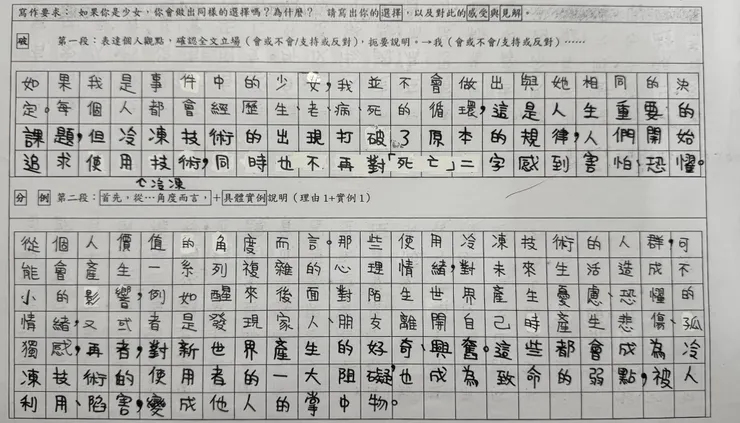 寫作要求：如果你是少女，你會做出同樣的選擇嗎？為什麼？　請寫出你的選擇，以及對此的感受與見解。
破　第一段：表達個人觀點，確認全文立場（會或不會/支持或反對），扼要說明。→我（會或不會/支持或反對）……
如果我是事件中的少女，我並不會做出與她相同的決
定。每個人都會經歷生、老、病、死的循環，這是人生重要的
課題，但冷凍技術的出現打破了原本的規律，人們開始
追求使用技術，同時也不再對「死亡」二字感到害怕、恐懼。
分　例　第二段：首先，從…角度而言，+具體實例說明（理由1+實例1）
冷凍
從個人價值的角度而言。那些使用冷凍技術的人群，可
能會產生一系列複雜的心理情緒，對未來生活造成不
小的影響，例如醒來後面對陌生世界產生憂慮、恐懼的
情緒，又或者是發現家人朋友離開自己時產生悲傷、孤
獨感，再者，對新世界產生的好奇、興奮。這些都會成為冷
凍技術的使用者的一大阻礙，也成為致命的弱點，被人
利用、陷害，變成他人的掌中物。